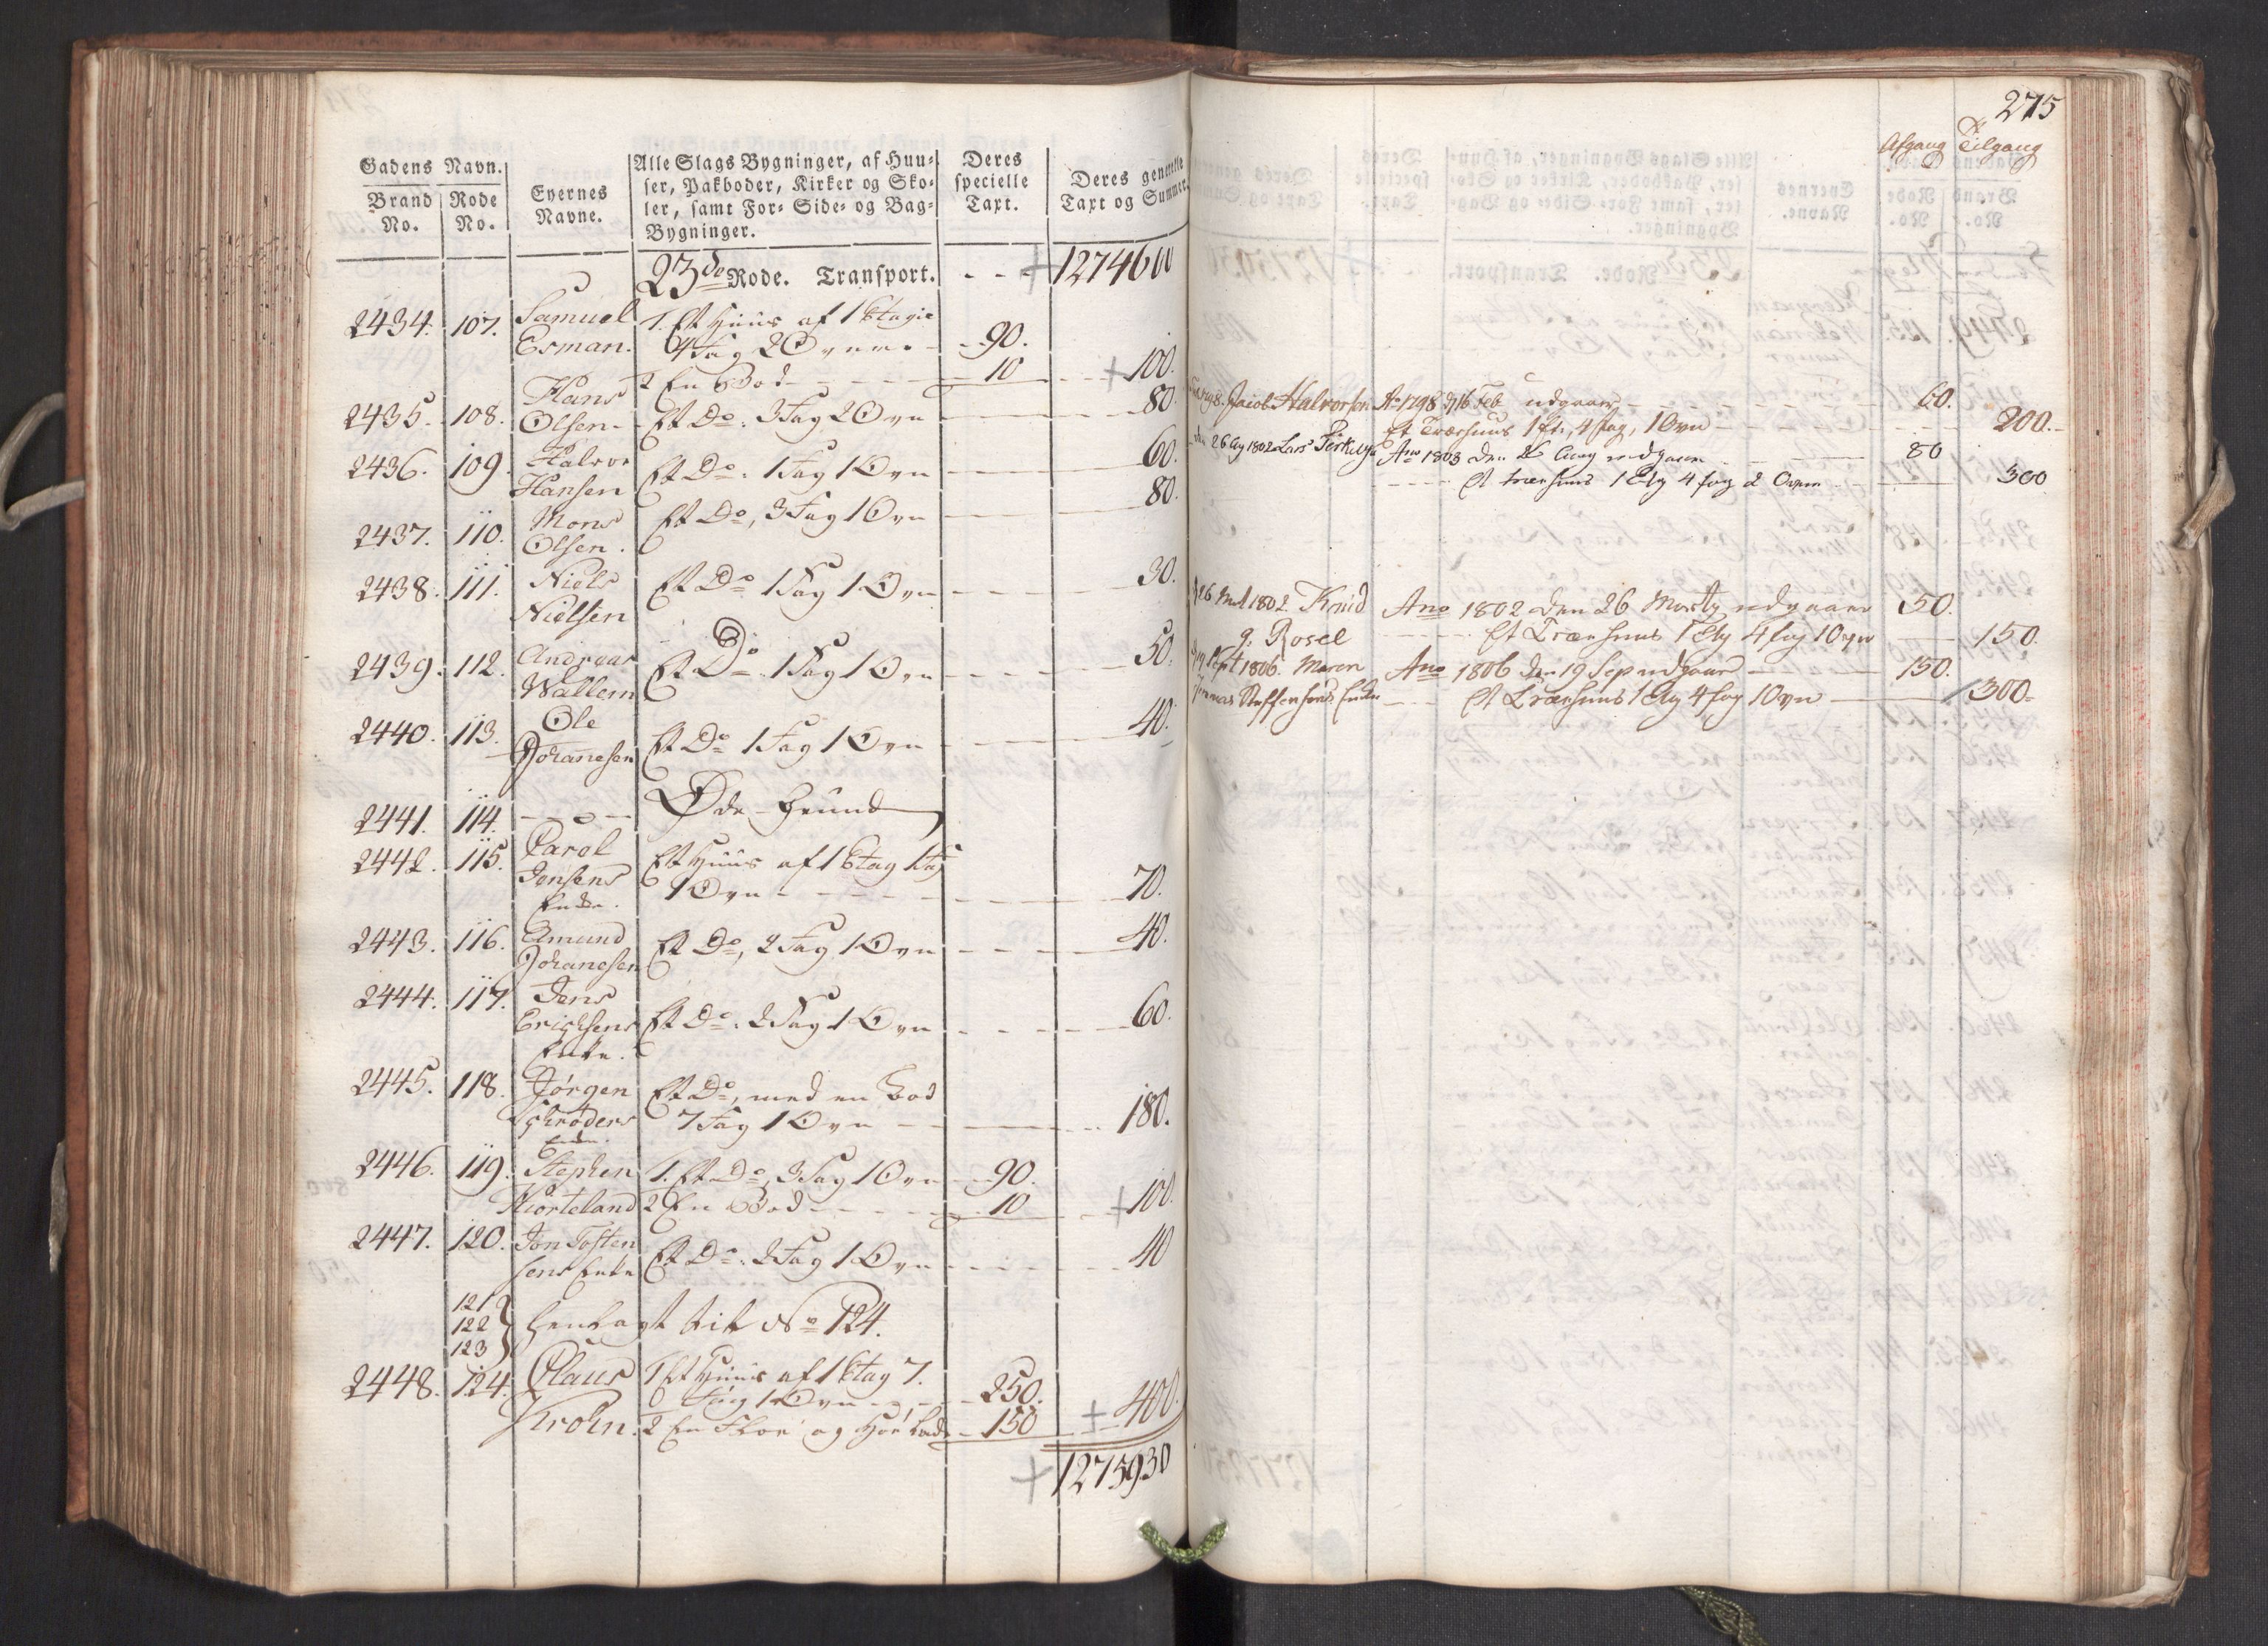 Gadens Navn.
Brand No.
Rode No.
Eyernes Navne.
Alle Slags Bygninger, af Huu-
ser, Pakboder, Kirker og Sko-
ler, samt For- Side- og Bag-
Bygninger.
Deres specielle Taxt.
Deres generelle Taxt og Summer.
23de Rode. Transport. - - + 1274600
2434. 107. Samuel 1. Et Huus af 1 Etagie
Esman. 4 Fag 2 Ovne - 90.
2 En Bod - - - 10 + 100.
2435. 108. Hans
Olsen - Et Do: 3 Fag 2 Ovn 80.
2436. 109. Halvor
Hansen Et Do: 1 Fag 1 Ovn 60.
2437. 110. Mons
Olsen. Et Do, 3 Fag 1 Ovn 80.
2438. 111. Niels
Nielsen Et Do 1 Fag 1 Ovn 30.
2439. 112. Andreas
Wallem Et Do. 1 Fag 1 Ovn 50.
2440. 113. Ole
Johannesen Et Do 1 Fag 1 Ovn 40.
2441. 114. Øde Grund
2442. 115. Carol Et Huus af 1 Etag 1 Fag
Jensens 1 Ovn - - - 70.
Enke.
2443. 116. Amund
Johanesen Et Do, 2 Fag 1 Ovn 40.
2444. 117. Jens
Erichsens Et Do. 2 Fag 1 Ovn 60.
Enke.
2445. 118. Jørgen Et Do, med en Bod
Schrøders 7 Fag 1 Ovn 180.
Enke.
2446. 119. Stephen 1. Et Do, 3 Fag 1 Ovn 90.
Kiorteland 2 En Bod - - - 10 + 100.
2447. 120. Jon Tosten
sens Enke Et Do: 2 Fag 1 Ovn 40
121
122 henlagt til No 124.
123
2448. 124. Claus 1 Et Huus af 1 Etag 7.
Fag 1 Ovn - 250.
Krohn. 2 En Floe og Høe lade 150 + 400.
+ 1275930
275
Afgang Tilgang
1798. Jacob Halvorsen Ao 1798 d 16 Feb udgaaer 60.
Et Træehuus 1 Et, 4 fag, 1 Ovn 200.
den 26 Aug 1802 Lars Ano 1803 den 26 Aug udgaaer 80
Et træehuus 1 Etg 4 fag 2 Ovne 300
26 Mart 1802. Knud Ano 1802 den 26 Marty udgaaer 50.
Rosel Et Træehuus 1 Etg 4 fag 1 Ovn 150.
19 Sept 1806. Maren Ano 1806 den 19 Sep udgaaer 150.
Steffensens Enke Et Træehuus 1 Etg 4 fag 1 Ovn 300.